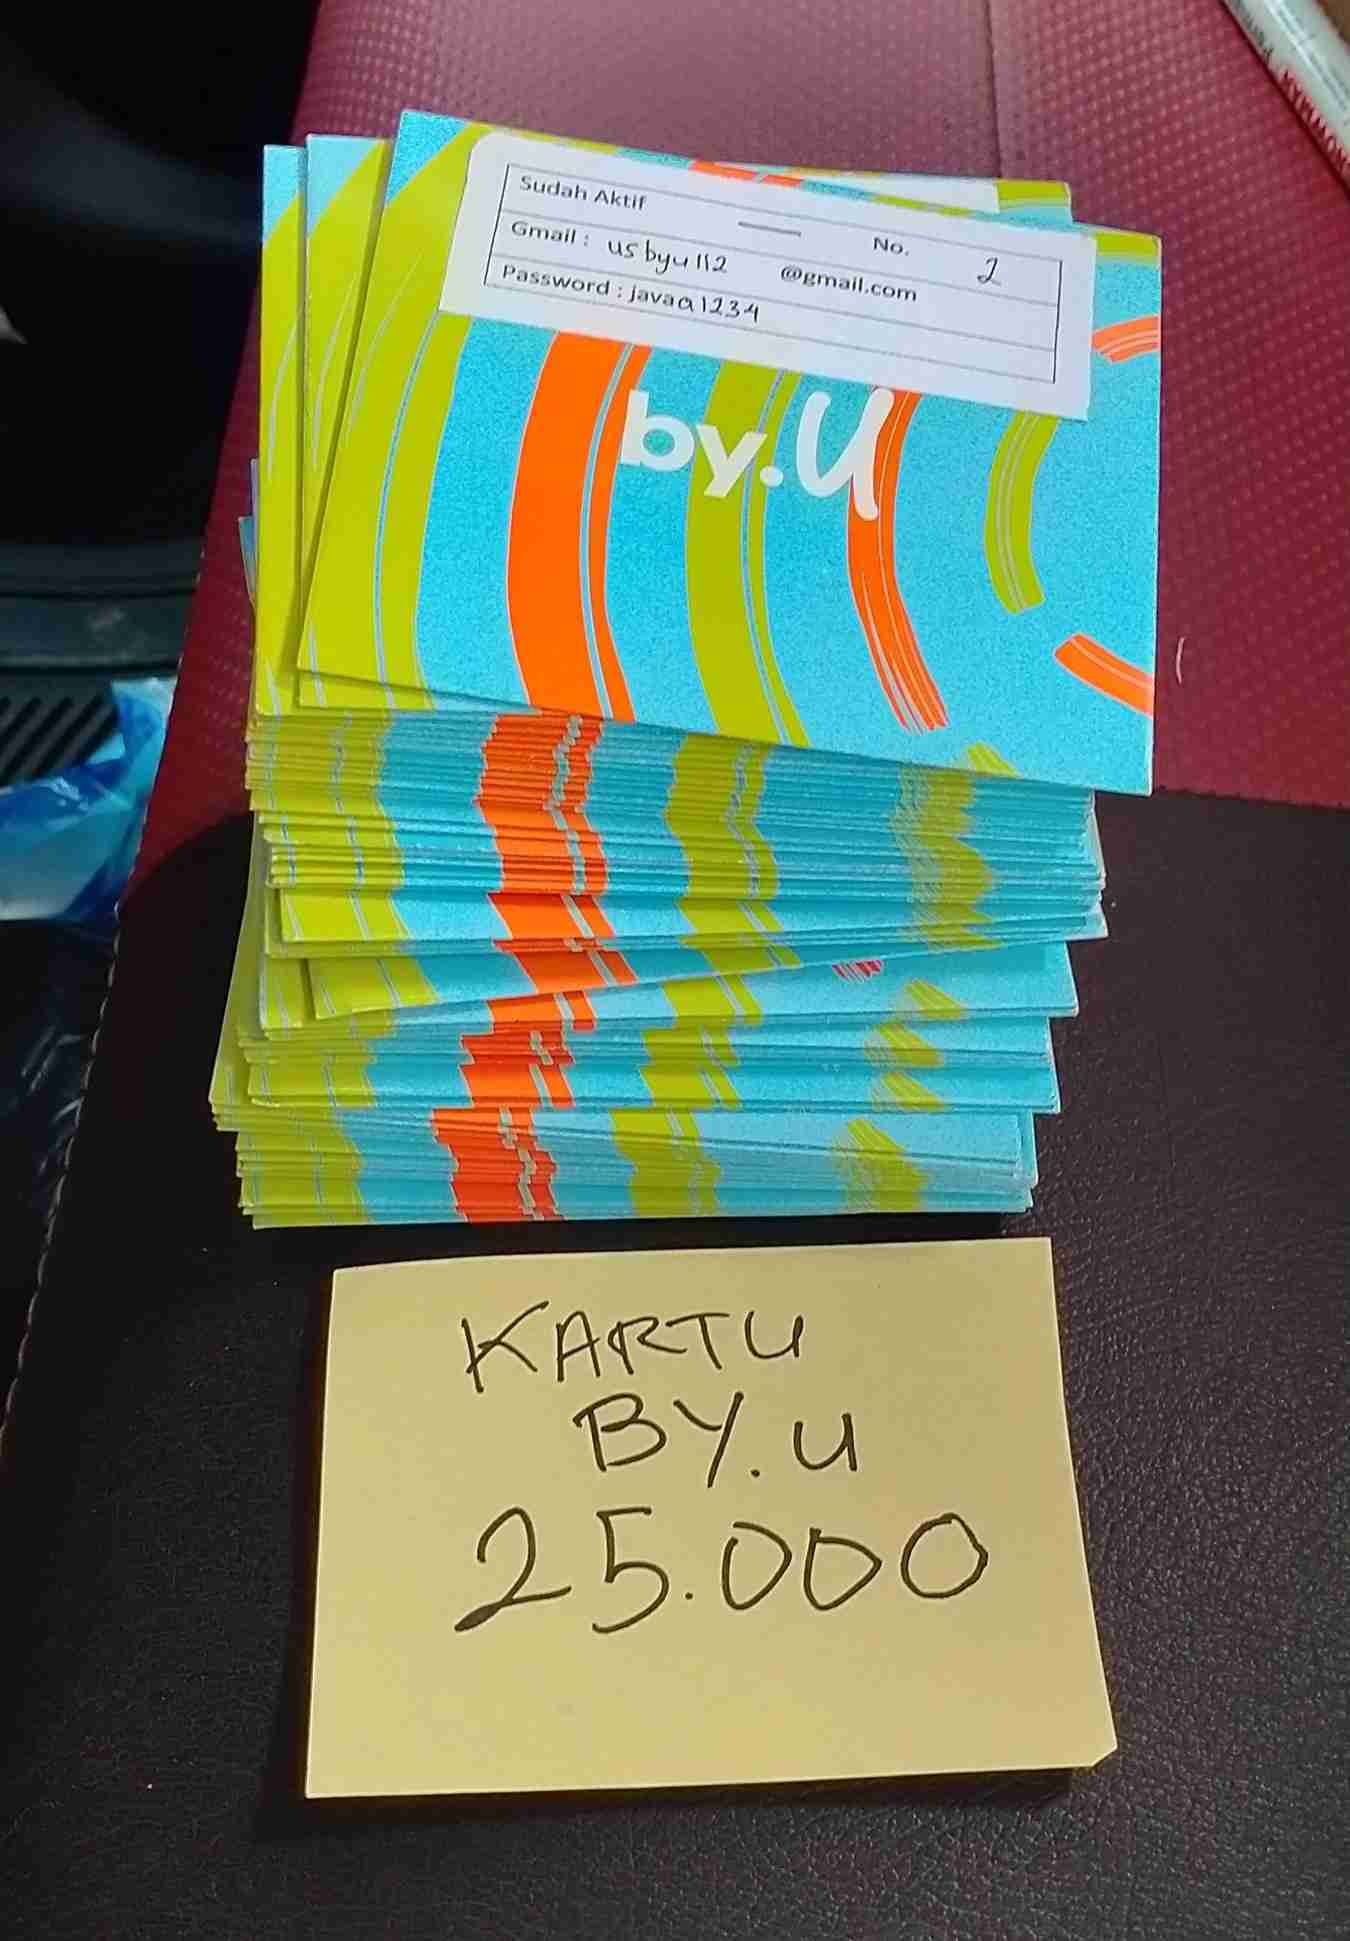 Sudah Aktif No. 2
Gmail : usbyu112 @gmail.com
Password : javaa1234
by.U
KARTU
BY.U
25.000